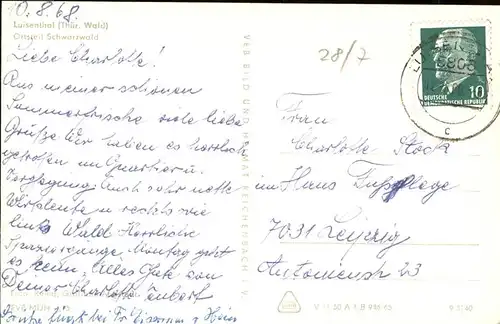 10.8.68.
Luisenthal (Thür. Wald)
Ortsteil Schwarzwald
Liebe Charlotte!
Aus meiner schönen
Sommerfrische viele liebe
Grüße. Wir haben es herrlich
getroffen im Quartier u.
Verpflegung. Auch sehr nette
Wirtsleute u. rechts wie
links Wald. Herrliche
Spaziergänge. Montag geht
es heim. Alles Gute von
Deiner Charlotte
VEB BILD UND HEIMAT REICHENBACH I. V.
28/7
DEUTSCHE
DEMOKRATISCHE REPUBLIK
10
5805
c
Frau
Charlotte Stock
im Haus Fußpflege
7031 Leipzig
Antonienstr. 23